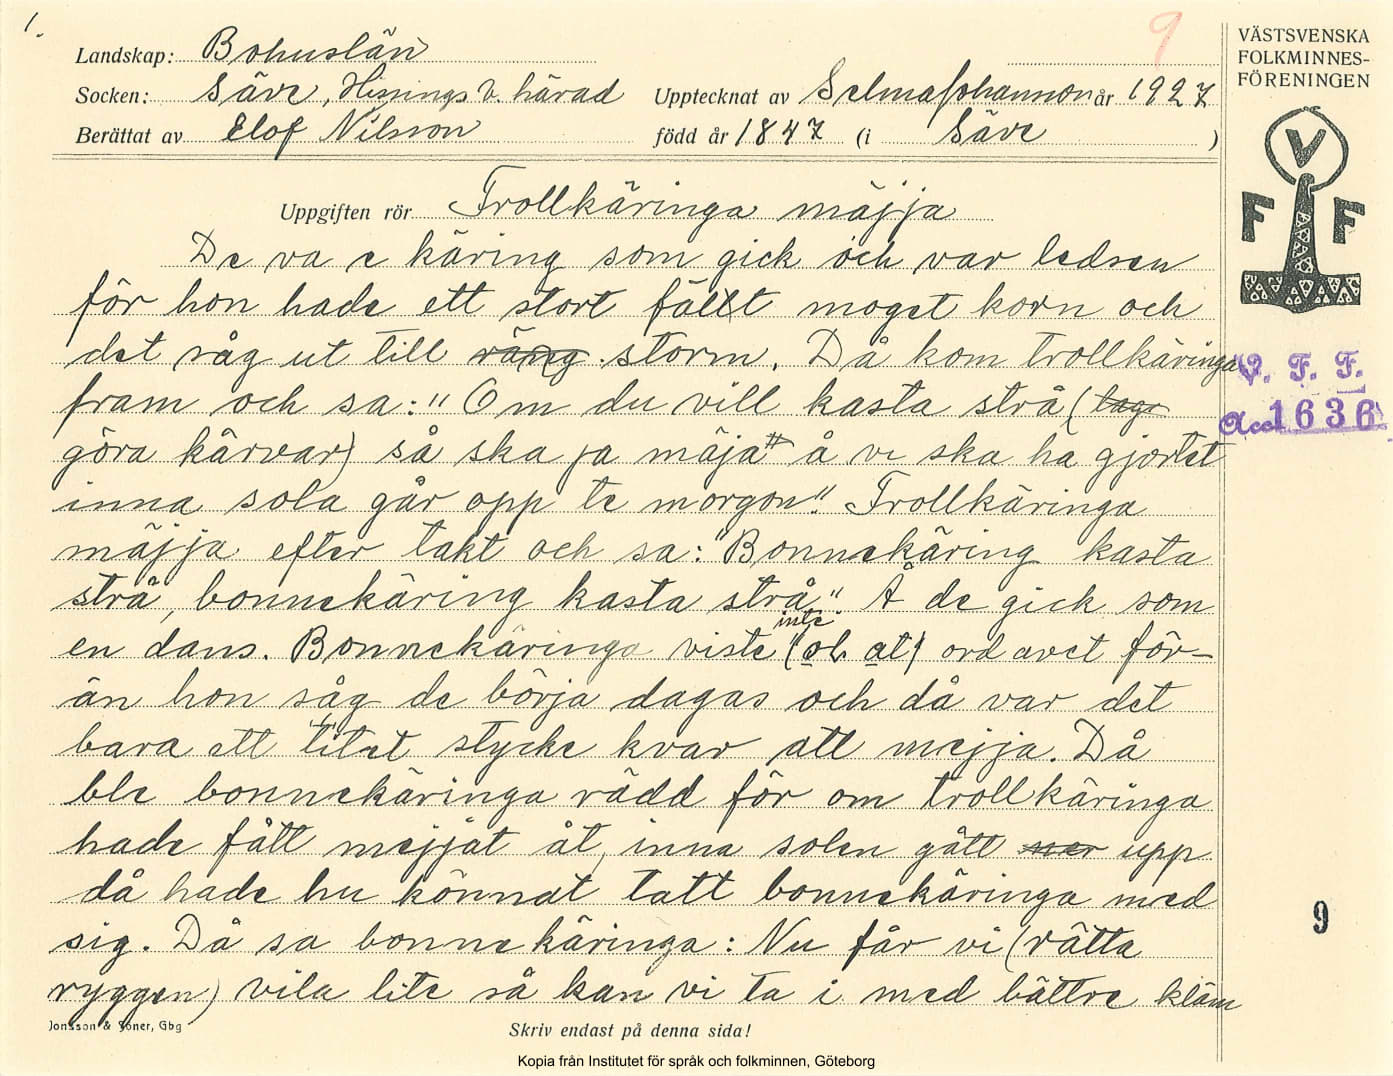 1.
9
VÄSTSVENSKA
FOLKMINNES-
FÖRENINGEN
V
F F
Landskap: Bohuslän
Socken: Säve, Hisings V. härad Upptecknat av Selma Johansson år 1927
Berättat av Elof Nilsson född år 1847 (i Säve )
Uppgiften rör Trollkäringa mäjja
De va e käring som gick och var ledsen
för hon hade ett stort fällt moget korn och
det såg ut till räng storm. Då kom trollkäringa
fram och sa: "Om du vill kasta strå (tage
göra kärvar) så ska ja mäja" å vi ska ha gjortet
inna sola går opp te morgon." Trollkäringa
mäjja efter takt och sa: "Bonnekäring kasta
strå, bonnekäring kasta strå." Å de gick som
en dans. Bonnekäringa viste inte (ol at) ord avet för-
än hon såg de börja dagas och då var det
bara ett litet stycke kvar att mejja. Då
ble bonnekäringa rädd för om trollkäringa
hade fått mejjat åt, inna solen gått upp
då hade hu könnat tatt bonnekäringa med
sig. Då sa bonnekäringa: Nu får vi (rätta
ryggen) vila lite så kan vi ta i med bättre kläm
V. F. F.
Acc 1636
9
Jonsson & Soner, Gbg
Skriv endast på denna sida!
Kopia från Institutet för språk och folkminnen, Göteborg